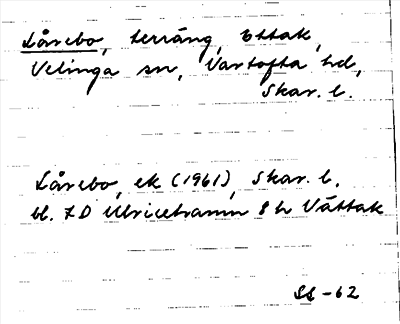 Lårebo, terräng, Ettak,
Velinga sn, Vartofta hd,
Skar. l.
Lårebo, ek (1961), Skar. l.
bl. 7D Ulricehamn 8h Vättak
SS -62